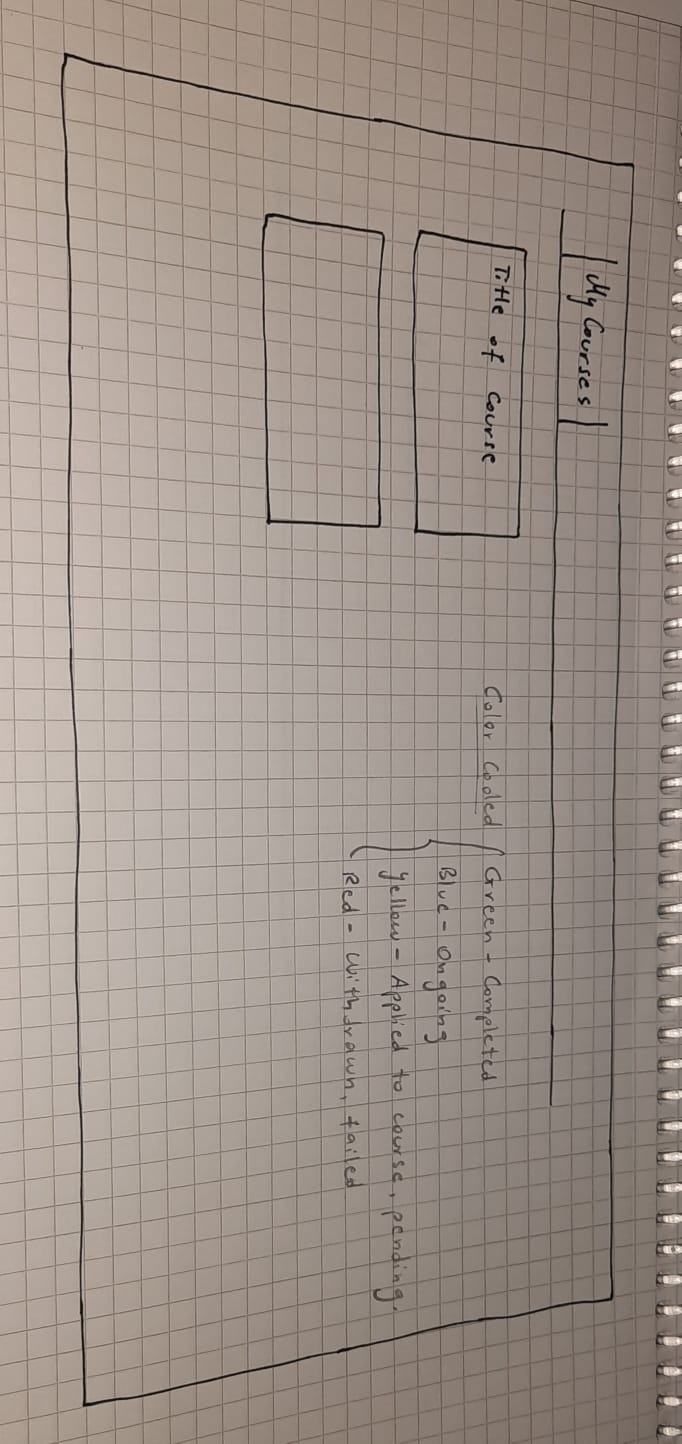 My Courses
Title of Course
Color Cooled
Green - Completed
Blue - Ongoing
Yellow - Applied to course, pending.
Red - Withdrawn, failed